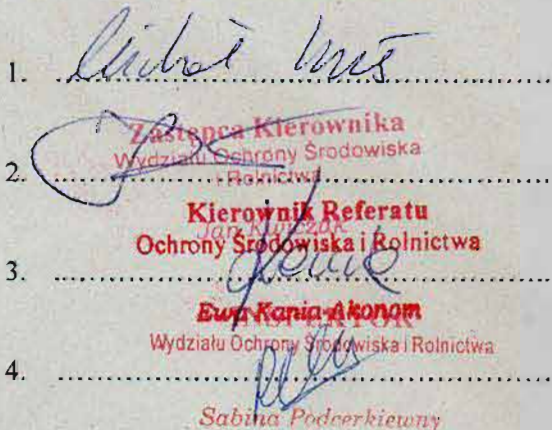 1. ..........
Zastępca Kierownika
Wydziału Ochrony Środowiska
i Rolnictwa
2. ..........
Kierownik Referatu
Jan
Ochrony Środowiska i Rolnictwa
3. ..........
Ewa Kania-Akonom
INSPEKTOR
Wydziału Ochrony Środowiska i Rolnictwa
4. ..........
Sabina Podcerkiewny